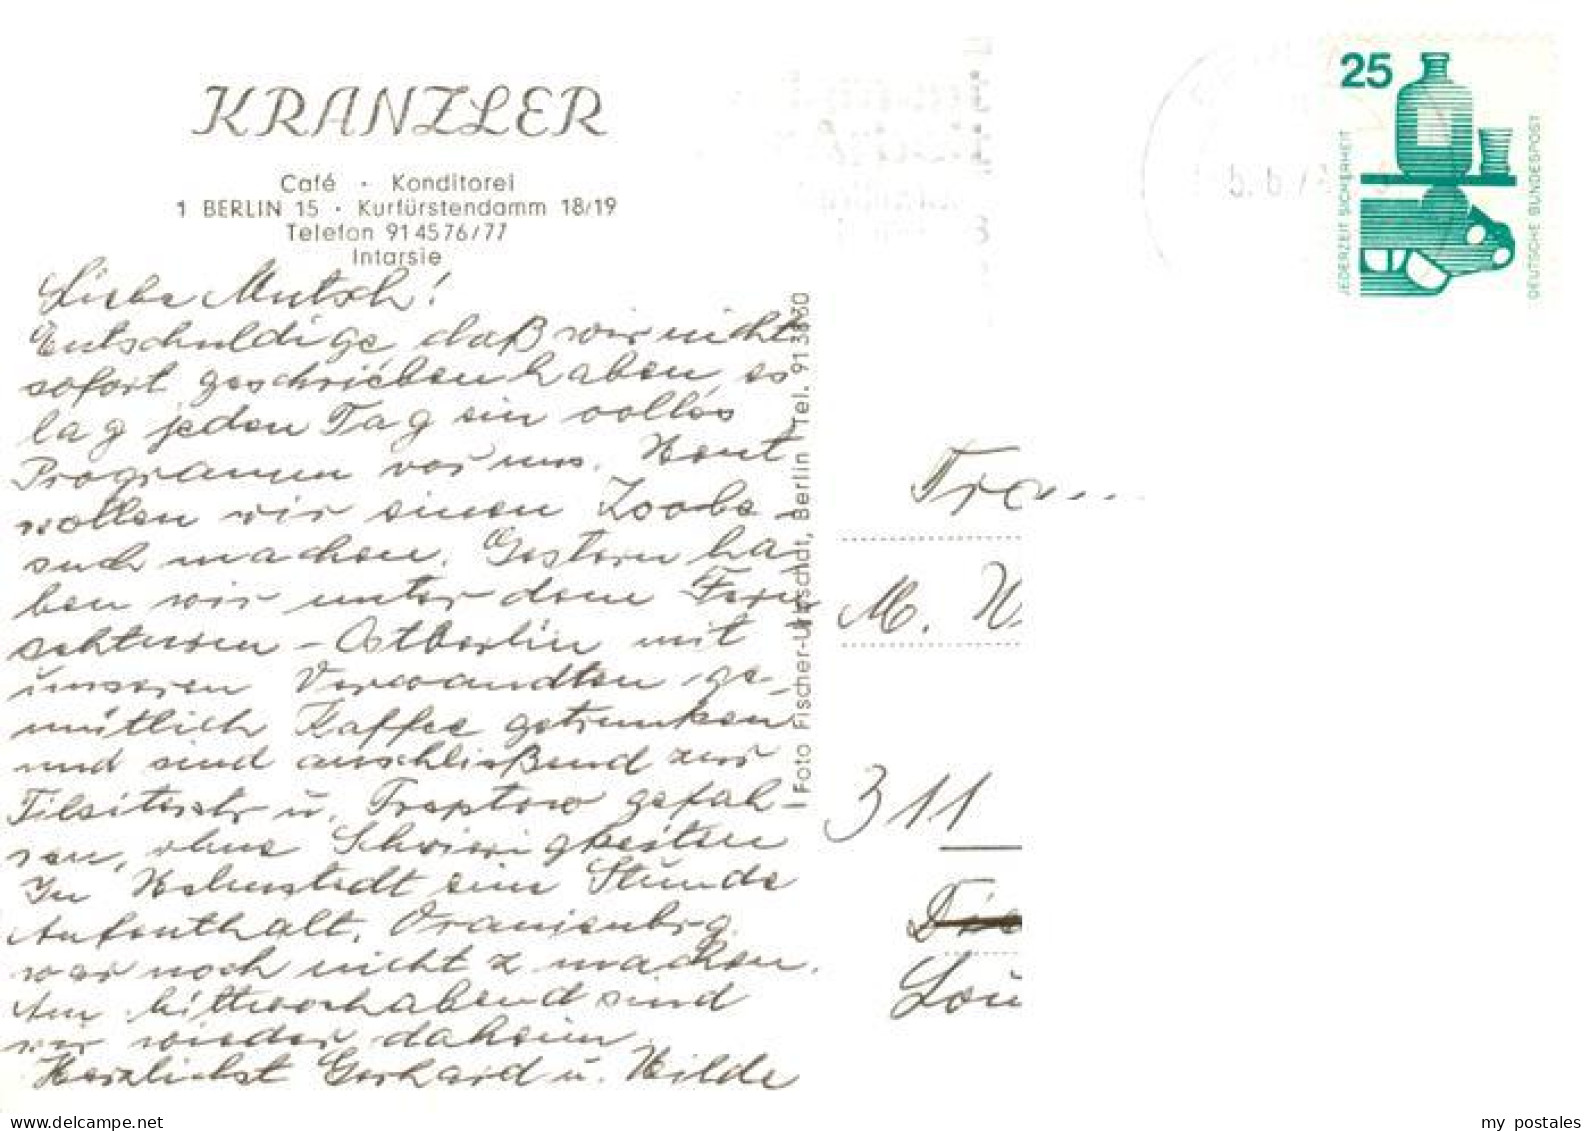 KRANZLER
Café · Konditorei
1 BERLIN 15 · Kurfürstendamm 18/19
Telefon 91 45 76/77
Intarsie
Liebe Mutsch!
Entschuldige, daß wir nicht
sofort geschrieben haben, es
lag jeden Tag ein volles
Programm vor uns. Heut
wollen wir einen Zoobe-
such machen. Gestern ha-
ben wir unter dem Fern
sehturm - Ostberlin mit
unseren Verwandten ge-
mütlich Kaffee getrunken
und sind anschließend zur
Tilsiterstr u. Treptow gefah-
ren, ohne Schwierigkeiten
In Helmstedt eine Stunde
Aufenthalt. Oranienbrg.
war noch nicht z machen.
Am Mittwochabend sind
wir wieder daheim.
Herzlichst Gerhard u. Hilde
Foto Fischer-Umschidt, Berlin Tel. 91 38 60
25
JEDERZEIT SICHERHEIT
DEUTSCHE BUNDESPOST
M.
311
my postales